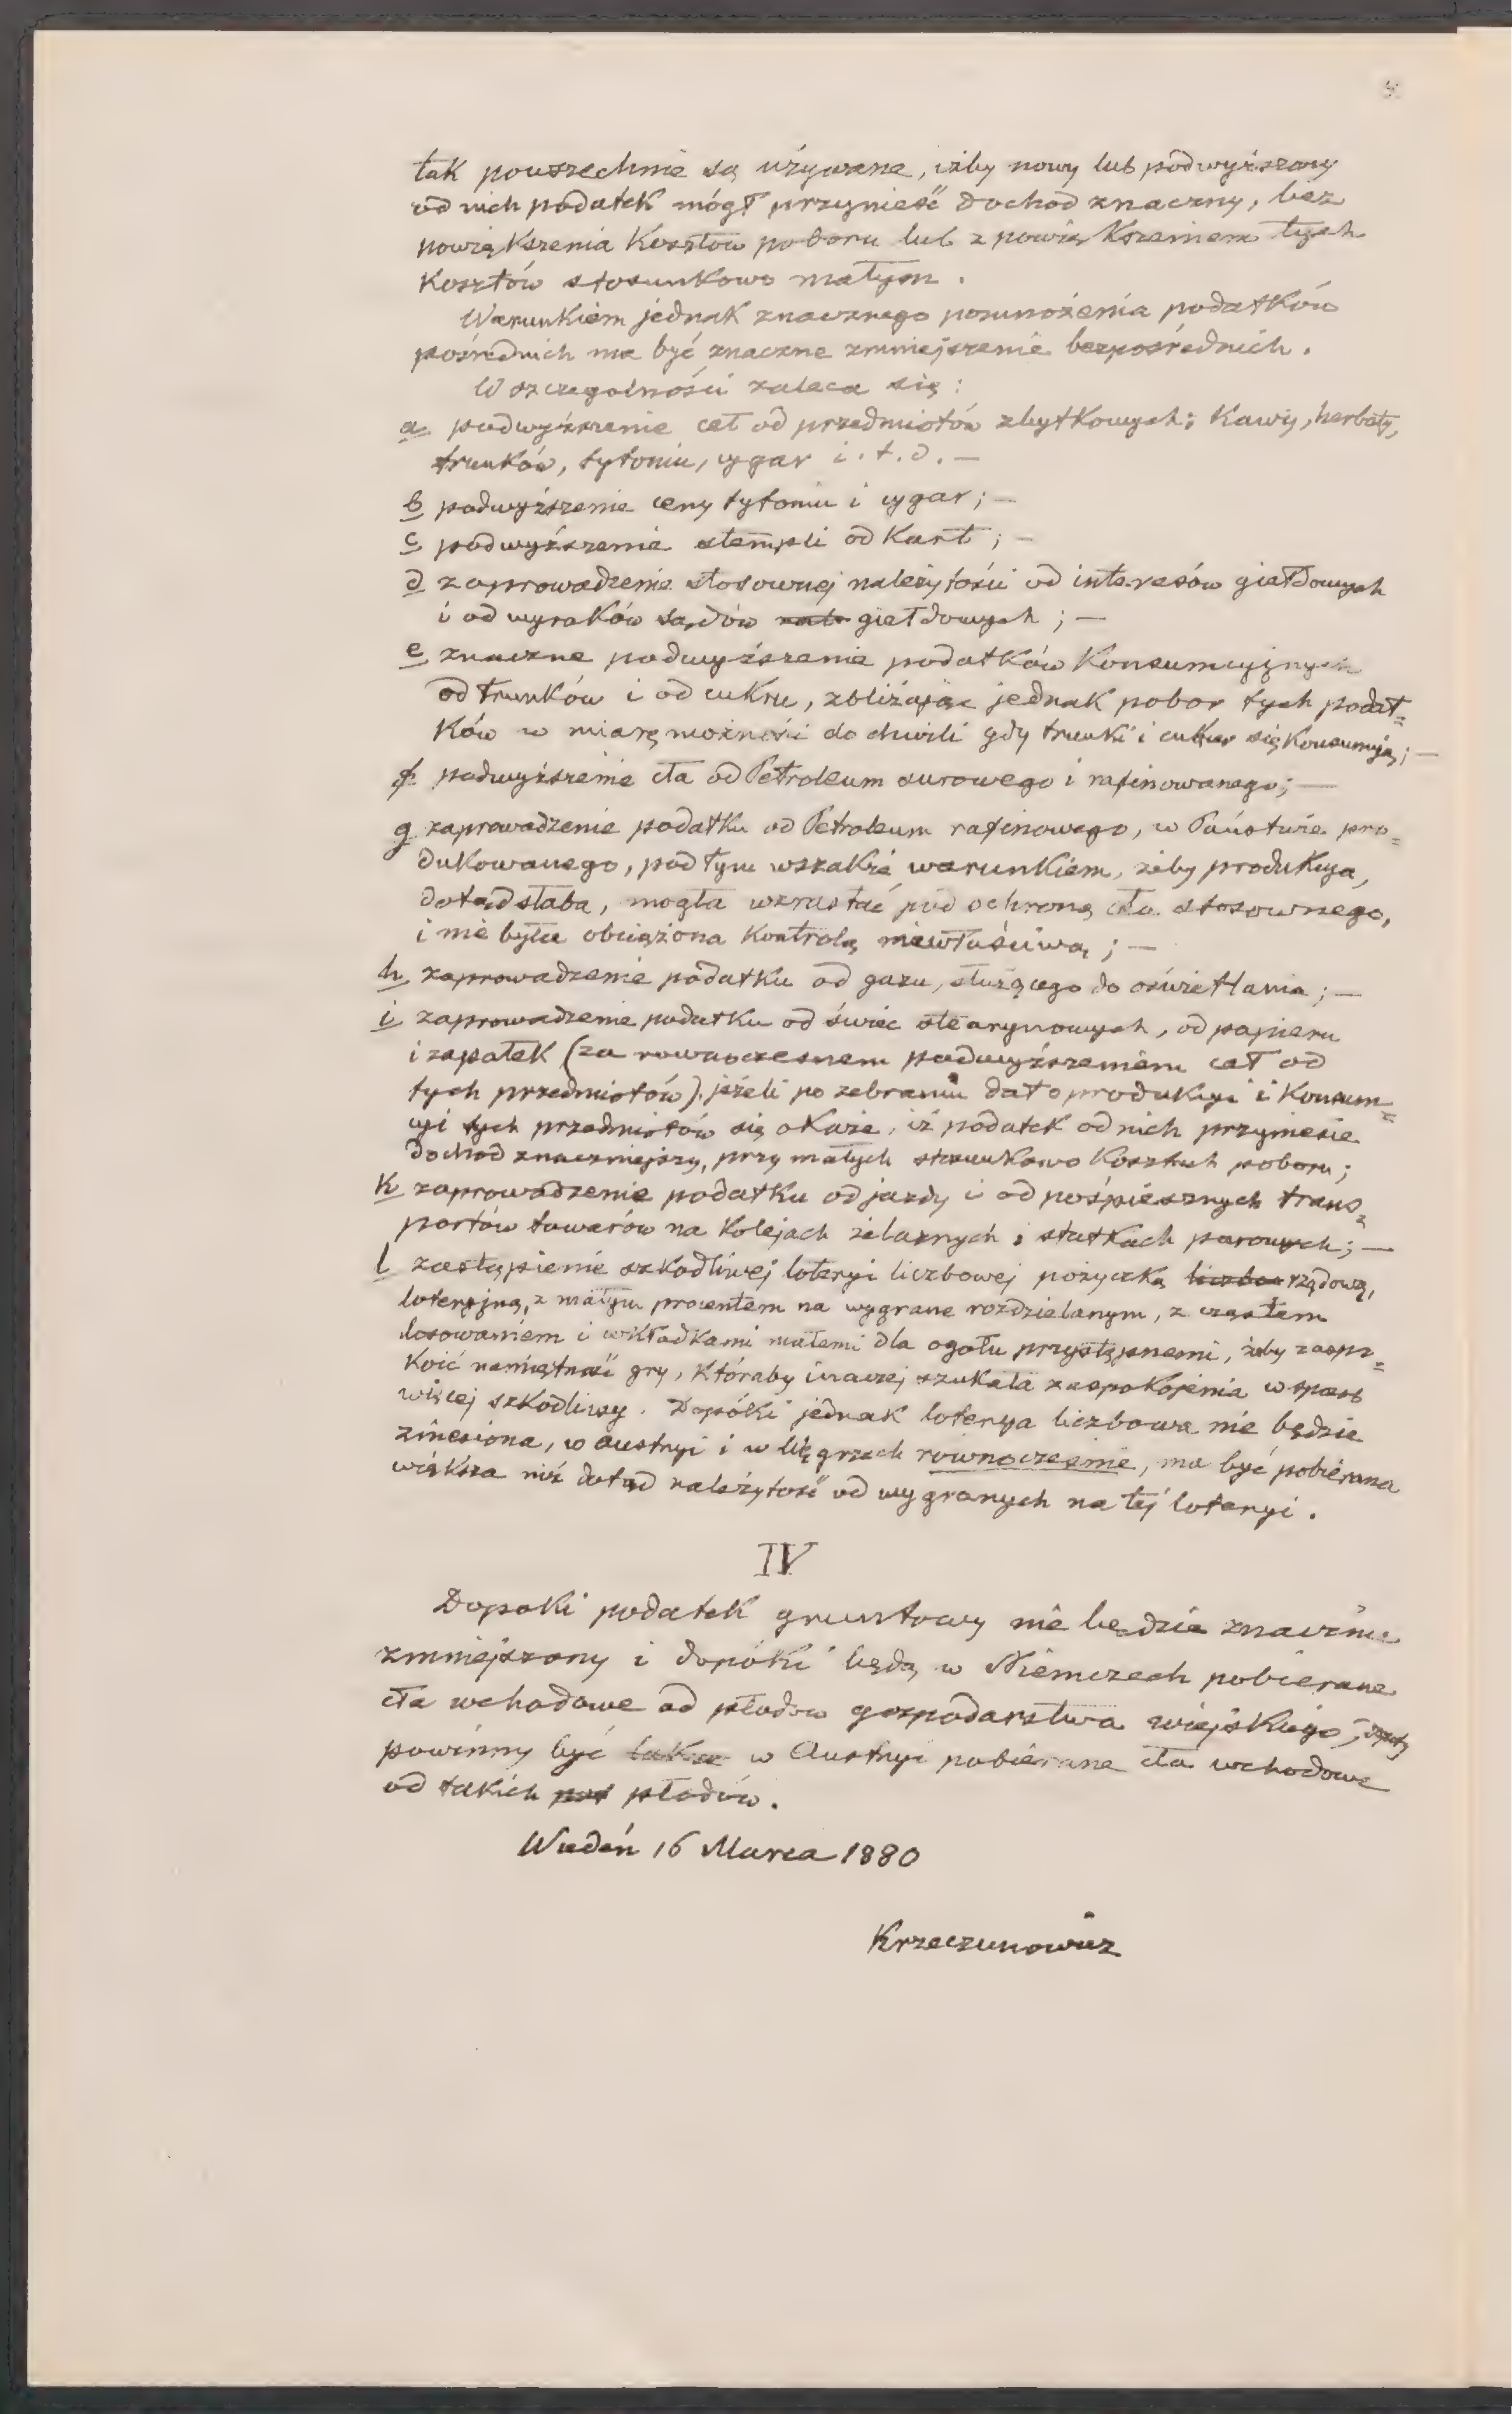 tak powszechnie są używane, iżby nowy lub podwyższony
od nich podatek mógł przynieść dochód znaczny, bez
powiększenia kosztów poboru lub z powiększeniem tych
kosztów stosunkowo małym.
Warunkiem jednak znacznego pomnożenia podatków
pośrednich ma być znaczne zmniejszenie bezpośrednich.
W szczególności zaleca się:
a podwyższenie ceł od przedmiotów zbytkowych: kawy, herbaty,
trunków, tytoniu, cygar i.t.d.—
b podwyższenie ceny tytoniu i cygar;—
c podwyższenie stempli od kart;—
d zaprowadzenie stosownej należytości od interesów giełdowych
i od wyroków sądów giełdowych;—
e znaczne podwyższenie podatków konsumcyjnych
od trunków i od cukru, zbliżając jednak pobor tych podat=
ków w miarę możności do chwili gdy trunki i cukier się konsumują;—
f podwyższenie cła od Petroleum surowego i rafinowanego;—
g zaprowadzenie podatku od Petroleum rafinowego, w Państwie pro=
dukowanego, pod tym wszakże warunkiem, żeby produkcya,
dotąd słaba, mogła wzrastać pod ochroną cła stosownego,
i nie była obciążona kontrolą niewłaściwą;—
h zaprowadzenie podatku od gazu, służącego do oświetlania;—
i zaprowadzenie podatku od świec stearynowych, od papieru
i zapałek (za rownoczesnem podwyższeniem ceł od
tych przedmiotów), jeżeli po zebraniu dat o produkcyi i konsum=
cyi tych przedmiotów się okaże, iż podatek od nich przyniesie
dochod znaczniejszy, przy małych stosunkowo kosztach poboru;
k zaprowadzenie podatku od jazdy i od pośpiesznych trans=
portów towarów na kolejach żelaznych i statkach parowych;—
l zastąpienie szkodliwej loteryi liczbowej pożyczką liczbow rządową,
loteryjną, z małym procentem na wygrane rozdzielanym, z częstem
losowaniem i wkładkami małemi dla ogołu przystępnemi, żeby zaspo=
koić namiętność gry, któraby inaczej szukała zaspokojenia w sposob
więcej szkodliwy. Dopóki jednak loterya liczbowa nie będzie
zniesiona, w Austryi i w Węgrzech rownocześnie, ma być pobierana
większa niż dotąd należytość od wygranych na tej loteryi.
IV
Dopoki podatek gruntowy nie będzie znacznie
zmniejszony i dopóki będą w Niemczech pobierane
cła wchodowe od płodow gospodarstwa wiejskiego,
powinny być także w Austryi pobierane cła wchodowe
od takich płodów.
Wiedeń 16 Marca 1880
Krzeczunowicz